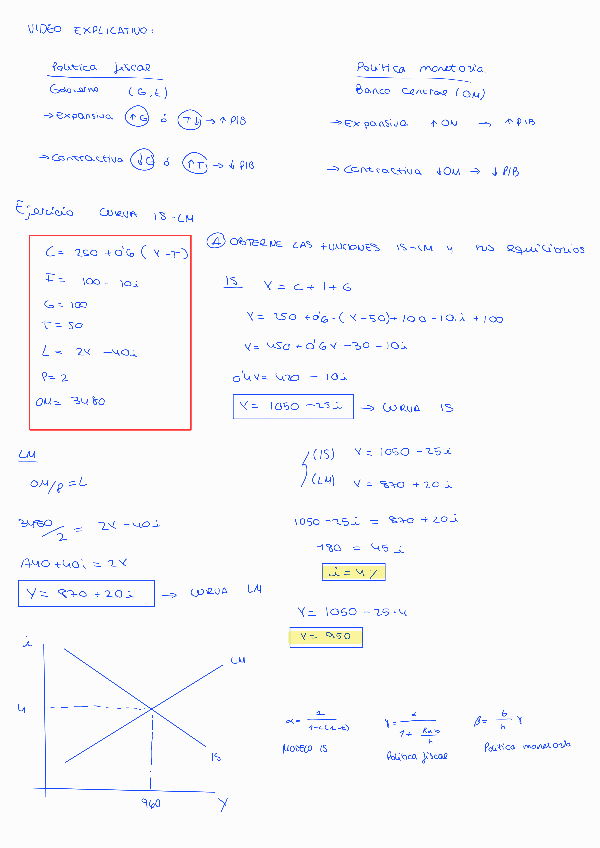 VIDEO EXPLICATIVO:
Política fiscal
Gobierno (G,t)
→ Expansiva ↑G ó ↓T → ↑PIB
→ Contractiva ↓G ó ↑T → ↓PIB
Política monetaria
Banco Central (OM)
→ Expansiva ↑OM → ↑PIB
→ Contractiva ↓OM → ↓PIB
Ejercicio CURVA IS-LM
C = 250 + 0'6 (Y-T)
I = 100 - 10i
G = 100
T = 50
L = 2Y - 40i
P = 2
OM = 3480
A OBTENE LAS FUNCIONES IS-LM y sus equilibrios
IS Y = C + I + G
Y = 250 + 0'6·(Y-50) + 100 - 10i + 100
Y = 450 + 0'6Y - 30 - 10i
0'4Y = 420 - 10i
Y = 1050 - 25i → CURVA IS
LM
OM/P = L
3480/2 = 2Y - 40i
1740 + 40i = 2Y
Y = 870 + 20i → CURVA LM
(IS) Y = 1050 - 25i
(LM) Y = 870 + 20i
1050 - 25i = 870 + 20i
180 = 45i
i = 4%
Y = 1050 - 25·4
Y = 950
i
LM
4
IS
950
Y
MODELO IS
Política fiscal
Política monetaria